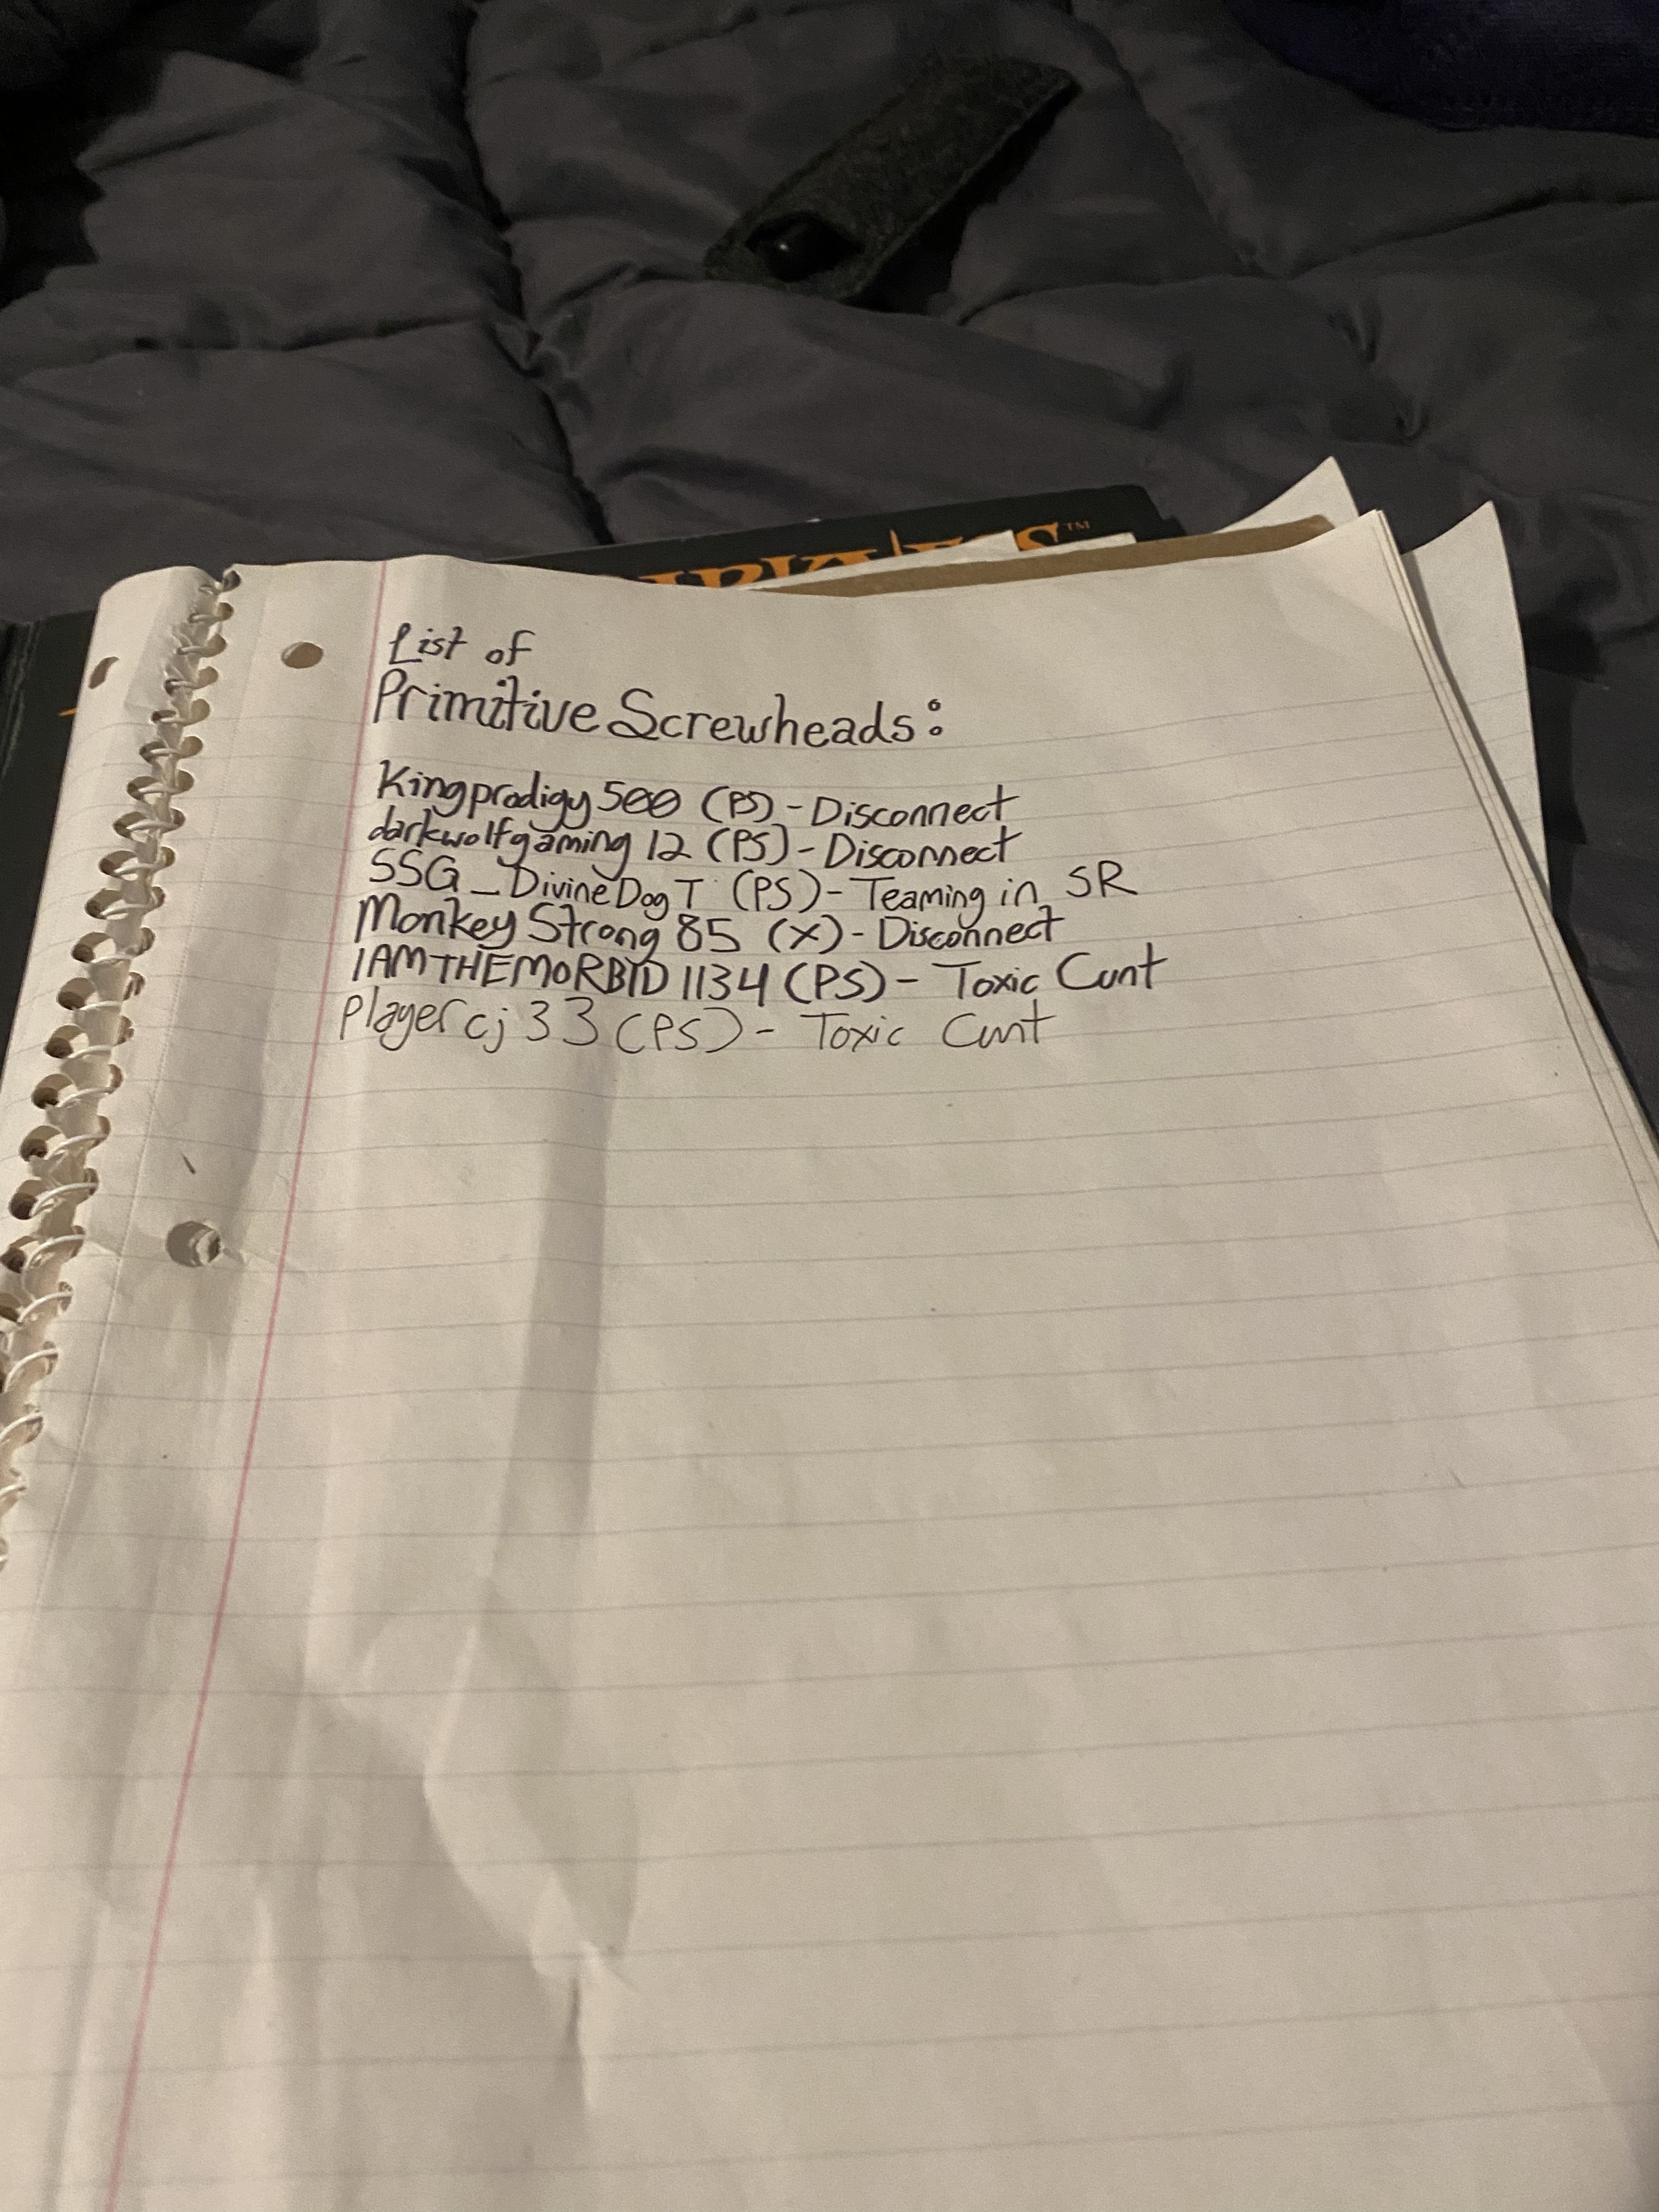 List of
Primitive Screwheads:
Kingprodigy500 (PS) - Disconnect
darkwolfgaming12 (PS) - Disconnect
SSG_DivineDogT (PS) - Teaming in SR
MonkeyStrong85 (X) - Disconnect
IAMTHEMORBID1134 (PS) - Toxic Cunt
Playercj33 (PS) - Toxic Cunt